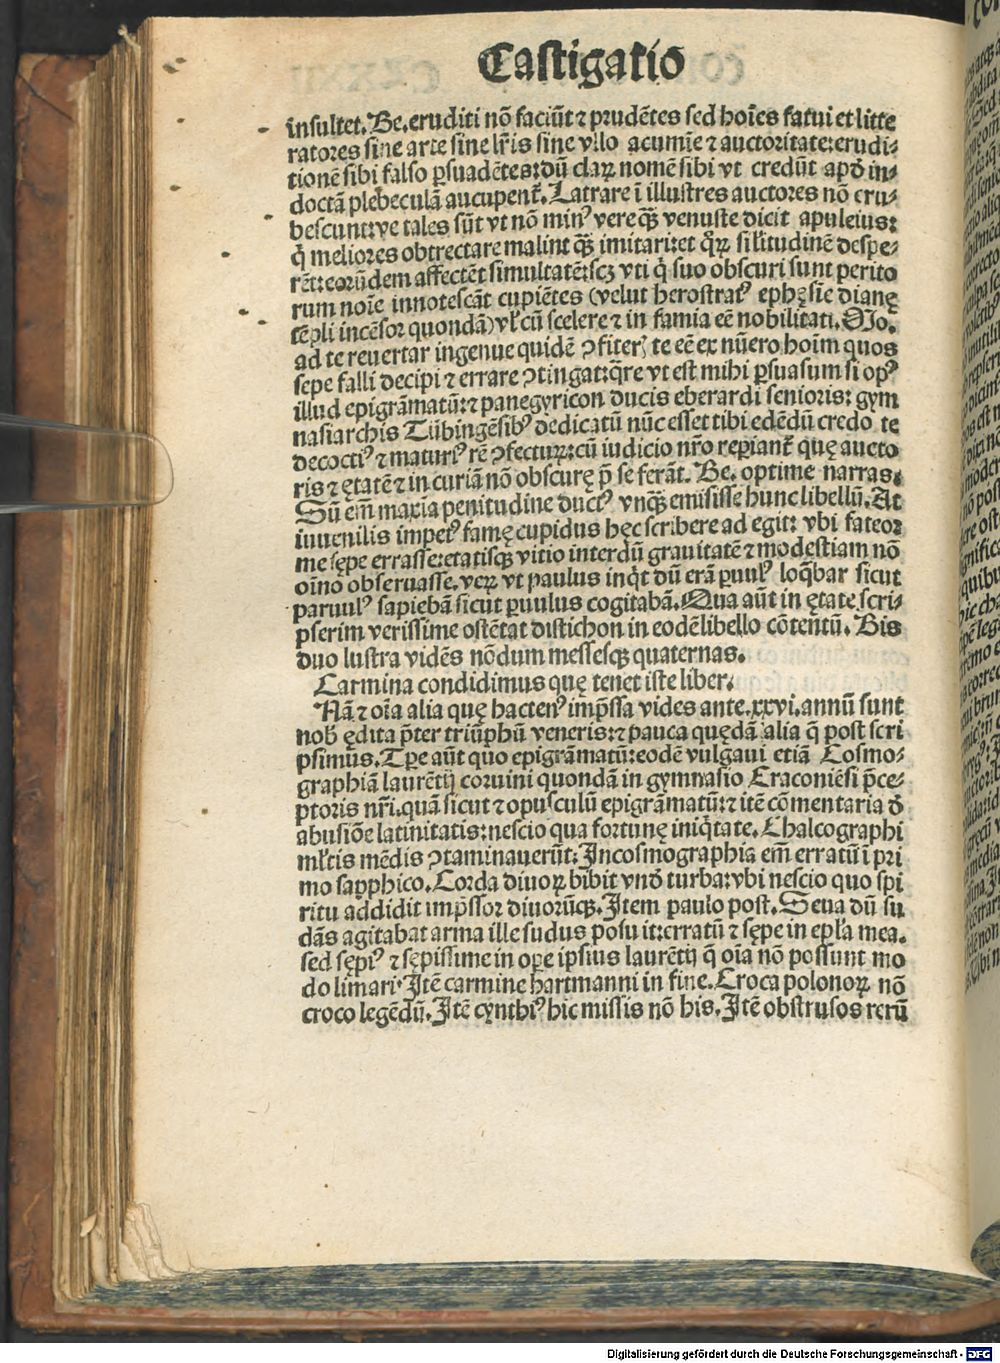 Castigatio
insultet. Be. eruditi nō faciūt ⁊ prudētes sed hoīes fatui et litte
ratores sine arte sine lr̄is sine vllo acumīe ⁊ auctoritate: erudi⸗
tionē sibi falso ꝑsuadētes: dū clarꝝ nomē sibi vt credūt apđ in⸗
doctā plebeculā aucupent᷑. Latrare ī illustres auctores nō eru⸗
bescunt: ve tales sūt vt nō minꝰ vere qꝫ̄ venuste dicit apuleius:
q̇ meliores obtrectare malint qꝫ̄ imitari: et qrꝝ siłitudinē despe⸗
rēt: eorūdem affectēt simultatē: scꝫ vti q̇ suo obscuri sunt perito
rum noīe innotescāt cupiētes (velut herostratꝰ ephęsie dianę
tēpli incēsor quondā) vł cū scelere ⁊ in famia eē nobilitati. Mo.
ad te reuertar ingenue quidē ꝯfiteri te eē ex nūero hoīm quos
sepe falli decipi ⁊ errare ꝯtingat: qre vt est mihi ꝑsuasum si opꝰ
illud epigrāmatū: ⁊ panegyricon ducis eberardi senioris: gym
nasiarchis Tūbingēsibꝰ dedicatū nūc esset tibi edēdū credo te
decoctiꝰ ⁊ maturiꝰ rē ꝯfecturꝝ: cū iudicio nr̄o reꝑiant᷑ quę aucto
ris ⁊ ętatē ⁊ in curiā nō obscurę p̄ se ferāt. Be. optime narras.
Sū em̄ maxīa penitudine ductꝰ vnqꝫ̄ emisisse hunc libellū. At
iuuenilis impetꝰ famę cupidus hęc scribere ad egit: vbi fateor
me sępe errasse: etatisqꝫ vitio interdū grauitatē ⁊ modestiam nō
oīno obseruasse. verꝝ vt paulus inq̇t dū erā ꝑuulꝰ loq̄bar sicut
paruulꝰ sapiebā sicut ꝑuulus cogitabā. Qua aūt in ętate scri⸗
pserim verissime ostētat distichon in eodē libello cōtentū. Bis
duo lustra vidēs nōdum messesqꝫ quaternas.
Carmina condidimus quę tenet iste liber.
Nā ⁊ oīa alia quę hactenꝰ imp̄ssa vides ante .xxvi. annū sunt
nob̄ ędita p̄ter triūphū veneris: ⁊ pauca quędā alia q̄ post scri
psimus. Tꝑe aūt quo epigrāmatū: eodē vulgaui etiā Cosmo⸗
graphiā laurētij coruini quondā in gymnasio Craconiēsi p̄ce⸗
ptoris nr̄i. quā sicut ⁊ opusculū epigrāmatū: ⁊ itē cōmentaria đ
abusiōe latinitatis: nescio qua fortunę iniq̇tate. Chalcographi
młtis mēdis ꝯtaminauerūt. In cosmographia em̄ erratū ī pri
mo sapphico. Corda diuoꝝ bibit vnđ turba: vbi nescio quo spi
ritu addidit imp̄ssor diuorūqꝫ. Item paulo post. Seua dū su
dās agitabat arma ille sudus posuit: erratū ⁊ sępe in epła mea.
sed sępiꝰ ⁊ sępissime in oꝑe ipsius laurētij q̄ oīa nō possunt mo
do limari. Itē carmine hartmanni in fine. Croca polonoꝝ nō
croco legēdū. Itē cynthiꝰ hic missis nō his. Itē obstrusos rerū
Digitalisierung gefördert durch die Deutsche Forschungsgemeinschaft - DFG